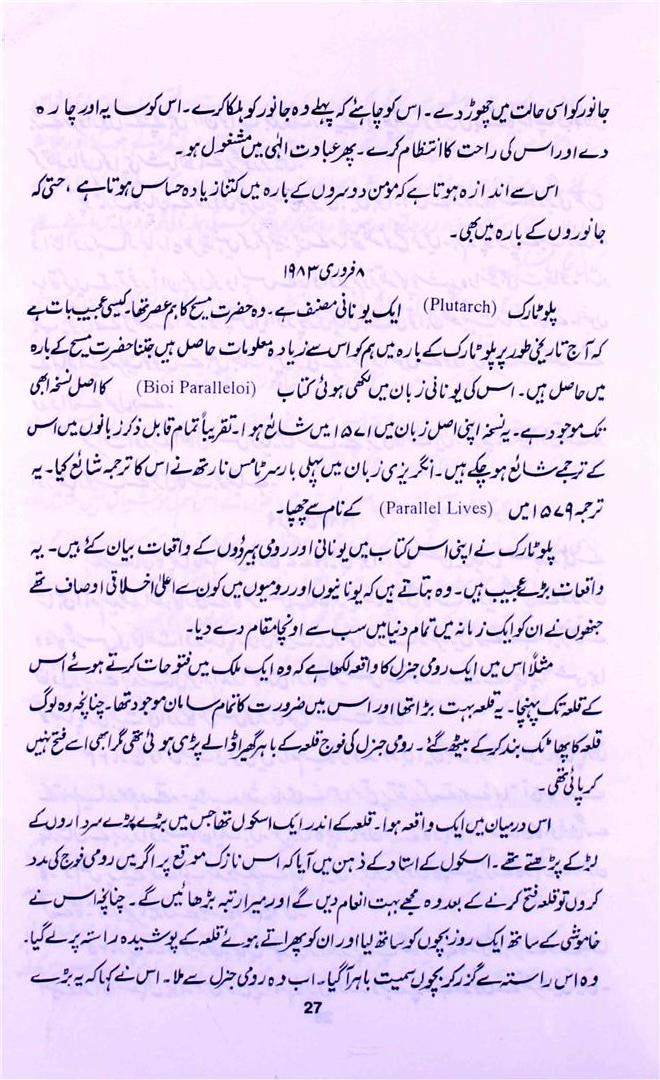 جانور کو اسی حالت میں چھوڑ دے۔ اس کو چاہئے کہ پہلے وہ جانور کو ہلکا کرے۔ اس کو سایہ اور چارہ
دے اور اس کی راحت کا انتظام کرے۔ پھر عبادت الٰہی میں مشغول ہو۔
اس سے اندازہ ہوتا ہے کہ مومن دوسروں کے بارہ میں کتنا زیادہ حساس ہوتا ہے، حتیٰ کہ
جانوروں کے بارہ میں بھی۔
۸ فروری ۱۹۸۳
پلوٹارک (Plutarch) ایک یونانی مصنف ہے۔ وہ حضرت مسیح کا ہم عصر تھا۔ کیسی عجیب بات ہے
کہ آج تاریخی طور پر پلوٹارک کے بارہ میں ہم کو اس سے زیادہ معلومات حاصل ہیں جتنا حضرت مسیح کے بارہ
میں حاصل ہیں۔ اس کی یونانی زبان میں لکھی ہوئی کتاب (Bioi Paralleloi) کا اصل نسخہ ابھی
تک موجود ہے۔ یہ نسخہ اپنی اصل زبان میں ۱۵۷۱ میں شائع ہوا۔ تقریباً تمام قابل ذکر زبانوں میں اس
کے ترجمے شائع ہو چکے ہیں۔ انگریزی زبان میں پہلی بار سر ٹامس نارتھ نے اس کا ترجمہ شائع کیا۔ یہ
ترجمہ ۱۵۷۹ میں (Parallel Lives) کے نام سے چھپا۔
پلوٹارک نے اپنی اس کتاب میں یونانی اور رومی ہیروؤں کے واقعات بیان کئے ہیں۔ یہ
واقعات بڑے عجیب ہیں۔ وہ بتاتے ہیں کہ یونانیوں اور رومیوں میں کون سے اعلیٰ اخلاقی اوصاف تھے
جنھوں نے ان کو ایک زمانہ میں تمام دنیا میں سب سے اونچا مقام دے دیا۔
مثلاً اس میں ایک رومی جنرل کا واقعہ لکھا ہے کہ وہ ایک ملک میں فتوحات کرتے ہوئے اس
کے قلعہ تک پہنچا۔ یہ قلعہ بہت بڑا تھا اور اس میں ضرورت کا تمام سامان موجود تھا۔ چنانچہ وہ لوگ
قلعہ کا پھاٹک بند کر کے بیٹھ گئے۔ رومی جنرل کی فوج قلعہ کے باہر گھیرا ڈالے پڑی ہوئی تھی مگر ابھی اسے فتح نہیں
کر پائی تھی۔
اس درمیان میں ایک واقعہ ہوا۔ قلعہ کے اندر ایک اسکول تھا جس میں بڑے بڑے سرداروں کے
لڑکے پڑھتے تھے۔ اسکول کے استاد کے ذہن میں آیا کہ اس نازک موقع پر اگر میں رومی فوج کی مدد
کروں تو قلعہ فتح کرنے کے بعد وہ مجھے بہت انعام دیں گے اور میرا رتبہ بڑھائیں گے۔ چنانچہ اس نے
خاموشی کے ساتھ ایک روز بچوں کو ساتھ لیا اور ان کو پھراتے ہوئے قلعہ کے پوشیدہ راستہ پر لے گیا۔
وہ اس راستہ سے گزر کر بچوں سمیت باہر آ گیا۔ اب وہ رومی جنرل سے ملا۔ اس نے کہا کہ یہ بڑے
27